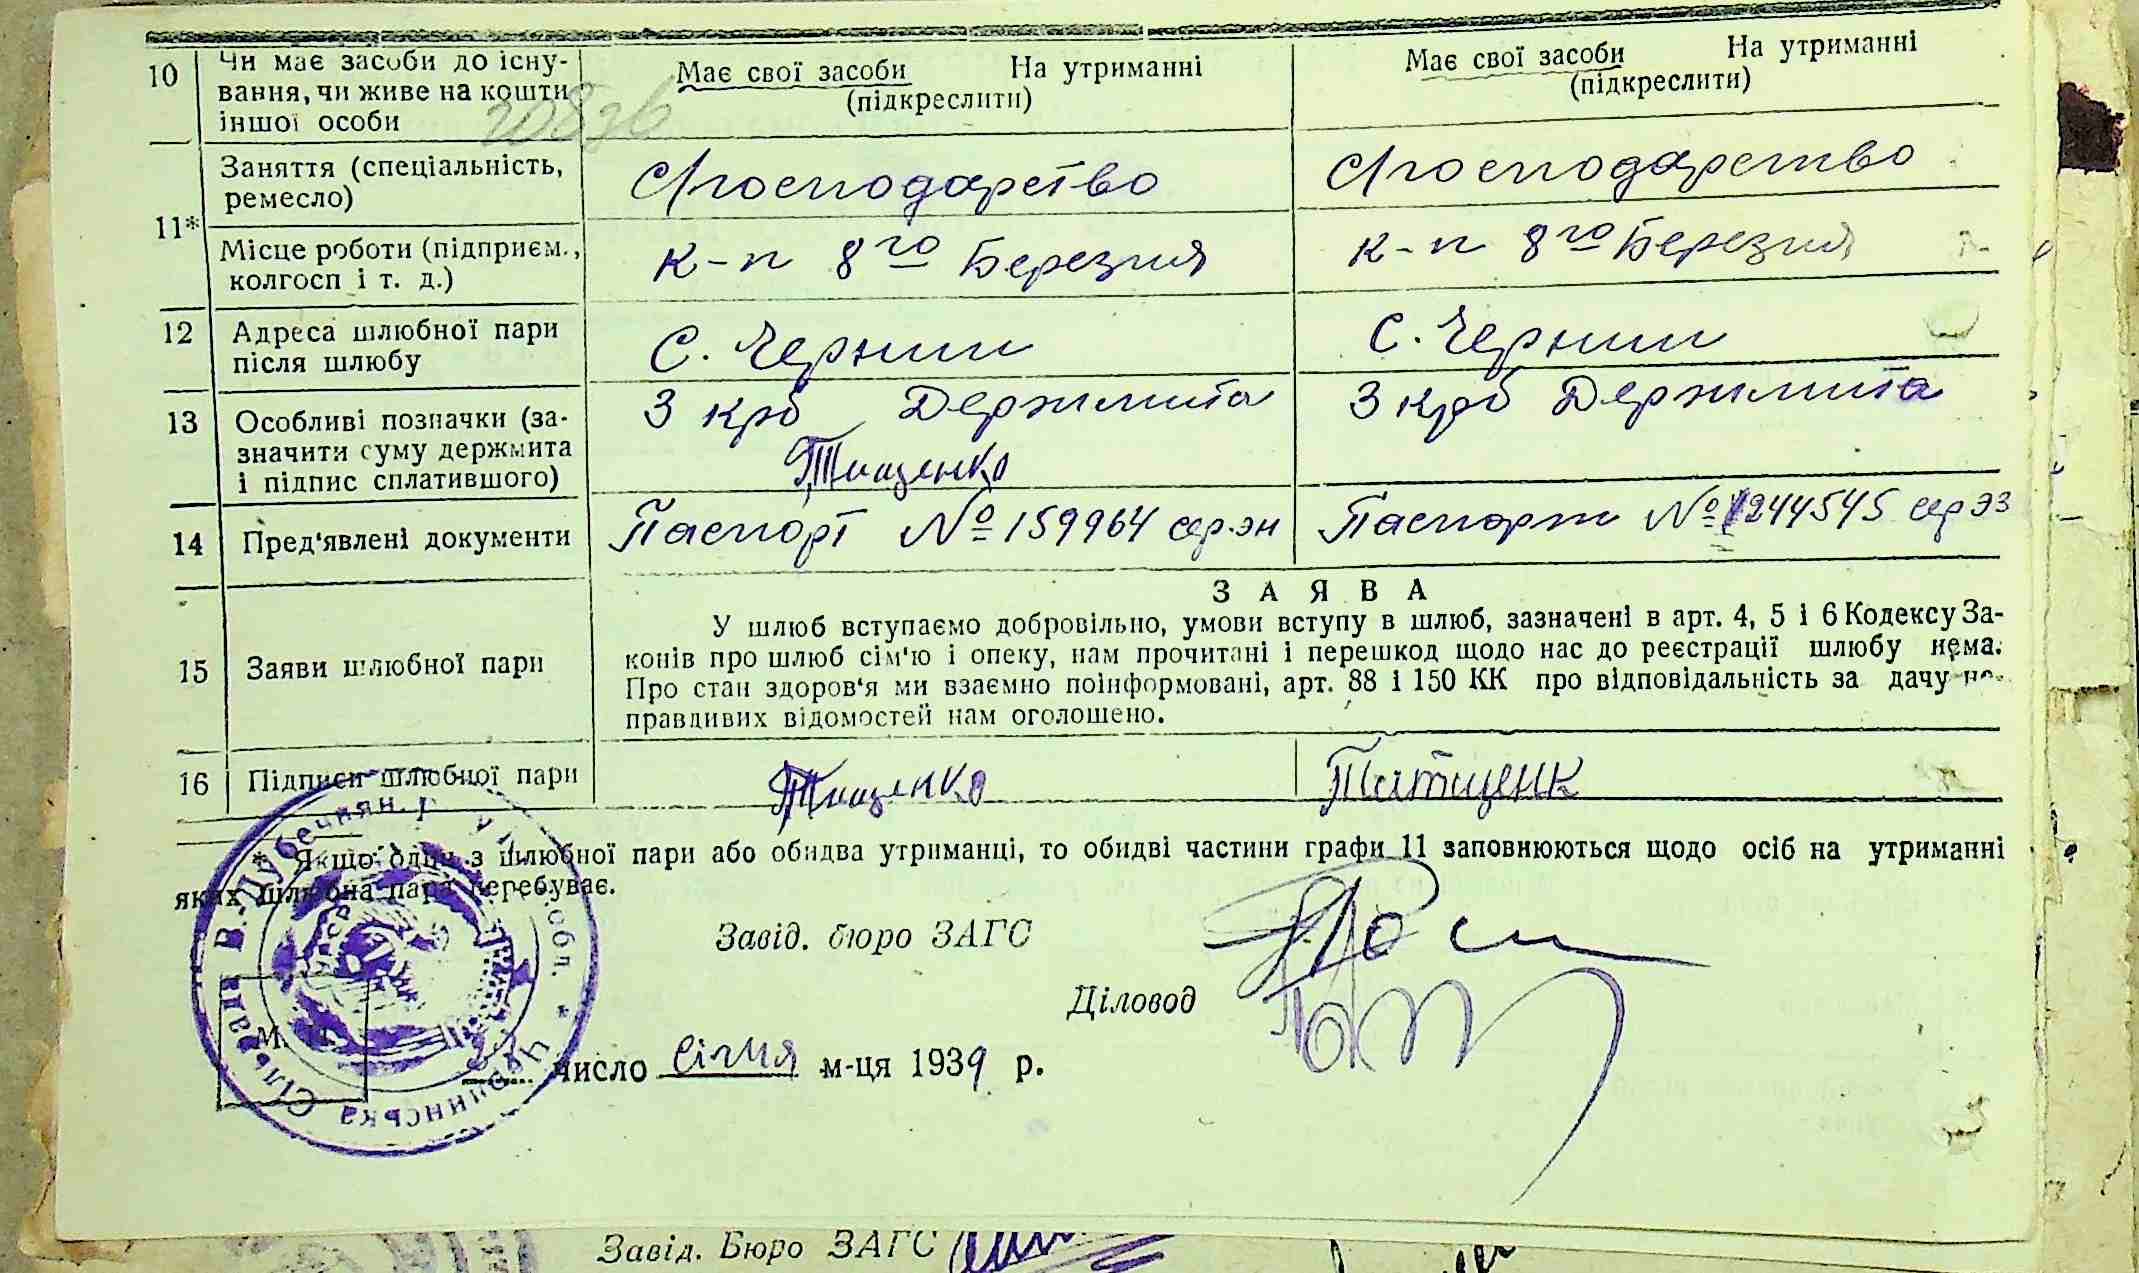 10 Чи має засоби до існу-
вання, чи живе на кошти
іншої особи
Має свої засоби На утриманні
(підкреслити)
Має свої засоби На утриманні
(підкреслити)
20836
11* Заняття (спеціальність,
ремесло)
С/господарство
С/господарство
Місце роботи (підприєм.,
колгосп і т. д.)
к-п 8го Березня
к-п 8го Березня
12 Адреса шлюбної пари
після шлюбу
С. Чернин
С. Чернин
13 Особливі позначки (за-
значити суму держмита
і підпис сплатившого)
3 крб Держмита
Тищенко
3 крб Держмита
14 Пред'явлені документи
Паспорт № 159964 сер. эн
Паспорт № 1244545 сер ЭЗ
15 Заяви шлюбної пари
ЗАЯВА
У шлюб вступаємо добровільно, умови вступу в шлюб, зазначені в арт. 4, 5 і 6 Кодексу За-
конів про шлюб сім'ю і опеку, нам прочитані і перешкод щодо нас до реєстрації шлюбу нема.
Про стан здоров'я ми взаємно поінформовані, арт. 88 і 150 КК про відповідальність за дачу не-
правдивих відомостей нам оголошено.
16 Підписи шлюбної пари
Тищенко
Татщенк
* Якщо один з шлюбної пари або обидва утриманці, то обидві частини графи 11 заповнюються щодо осіб на утриманні
яких шлюбна пара перебуває.
Завід. бюро ЗАГС
Діловод
М. П.
число січня м-ця 1939 р.
Сільська рада В.-Дубечнян. р
обл.
Завід. Бюро ЗАГС